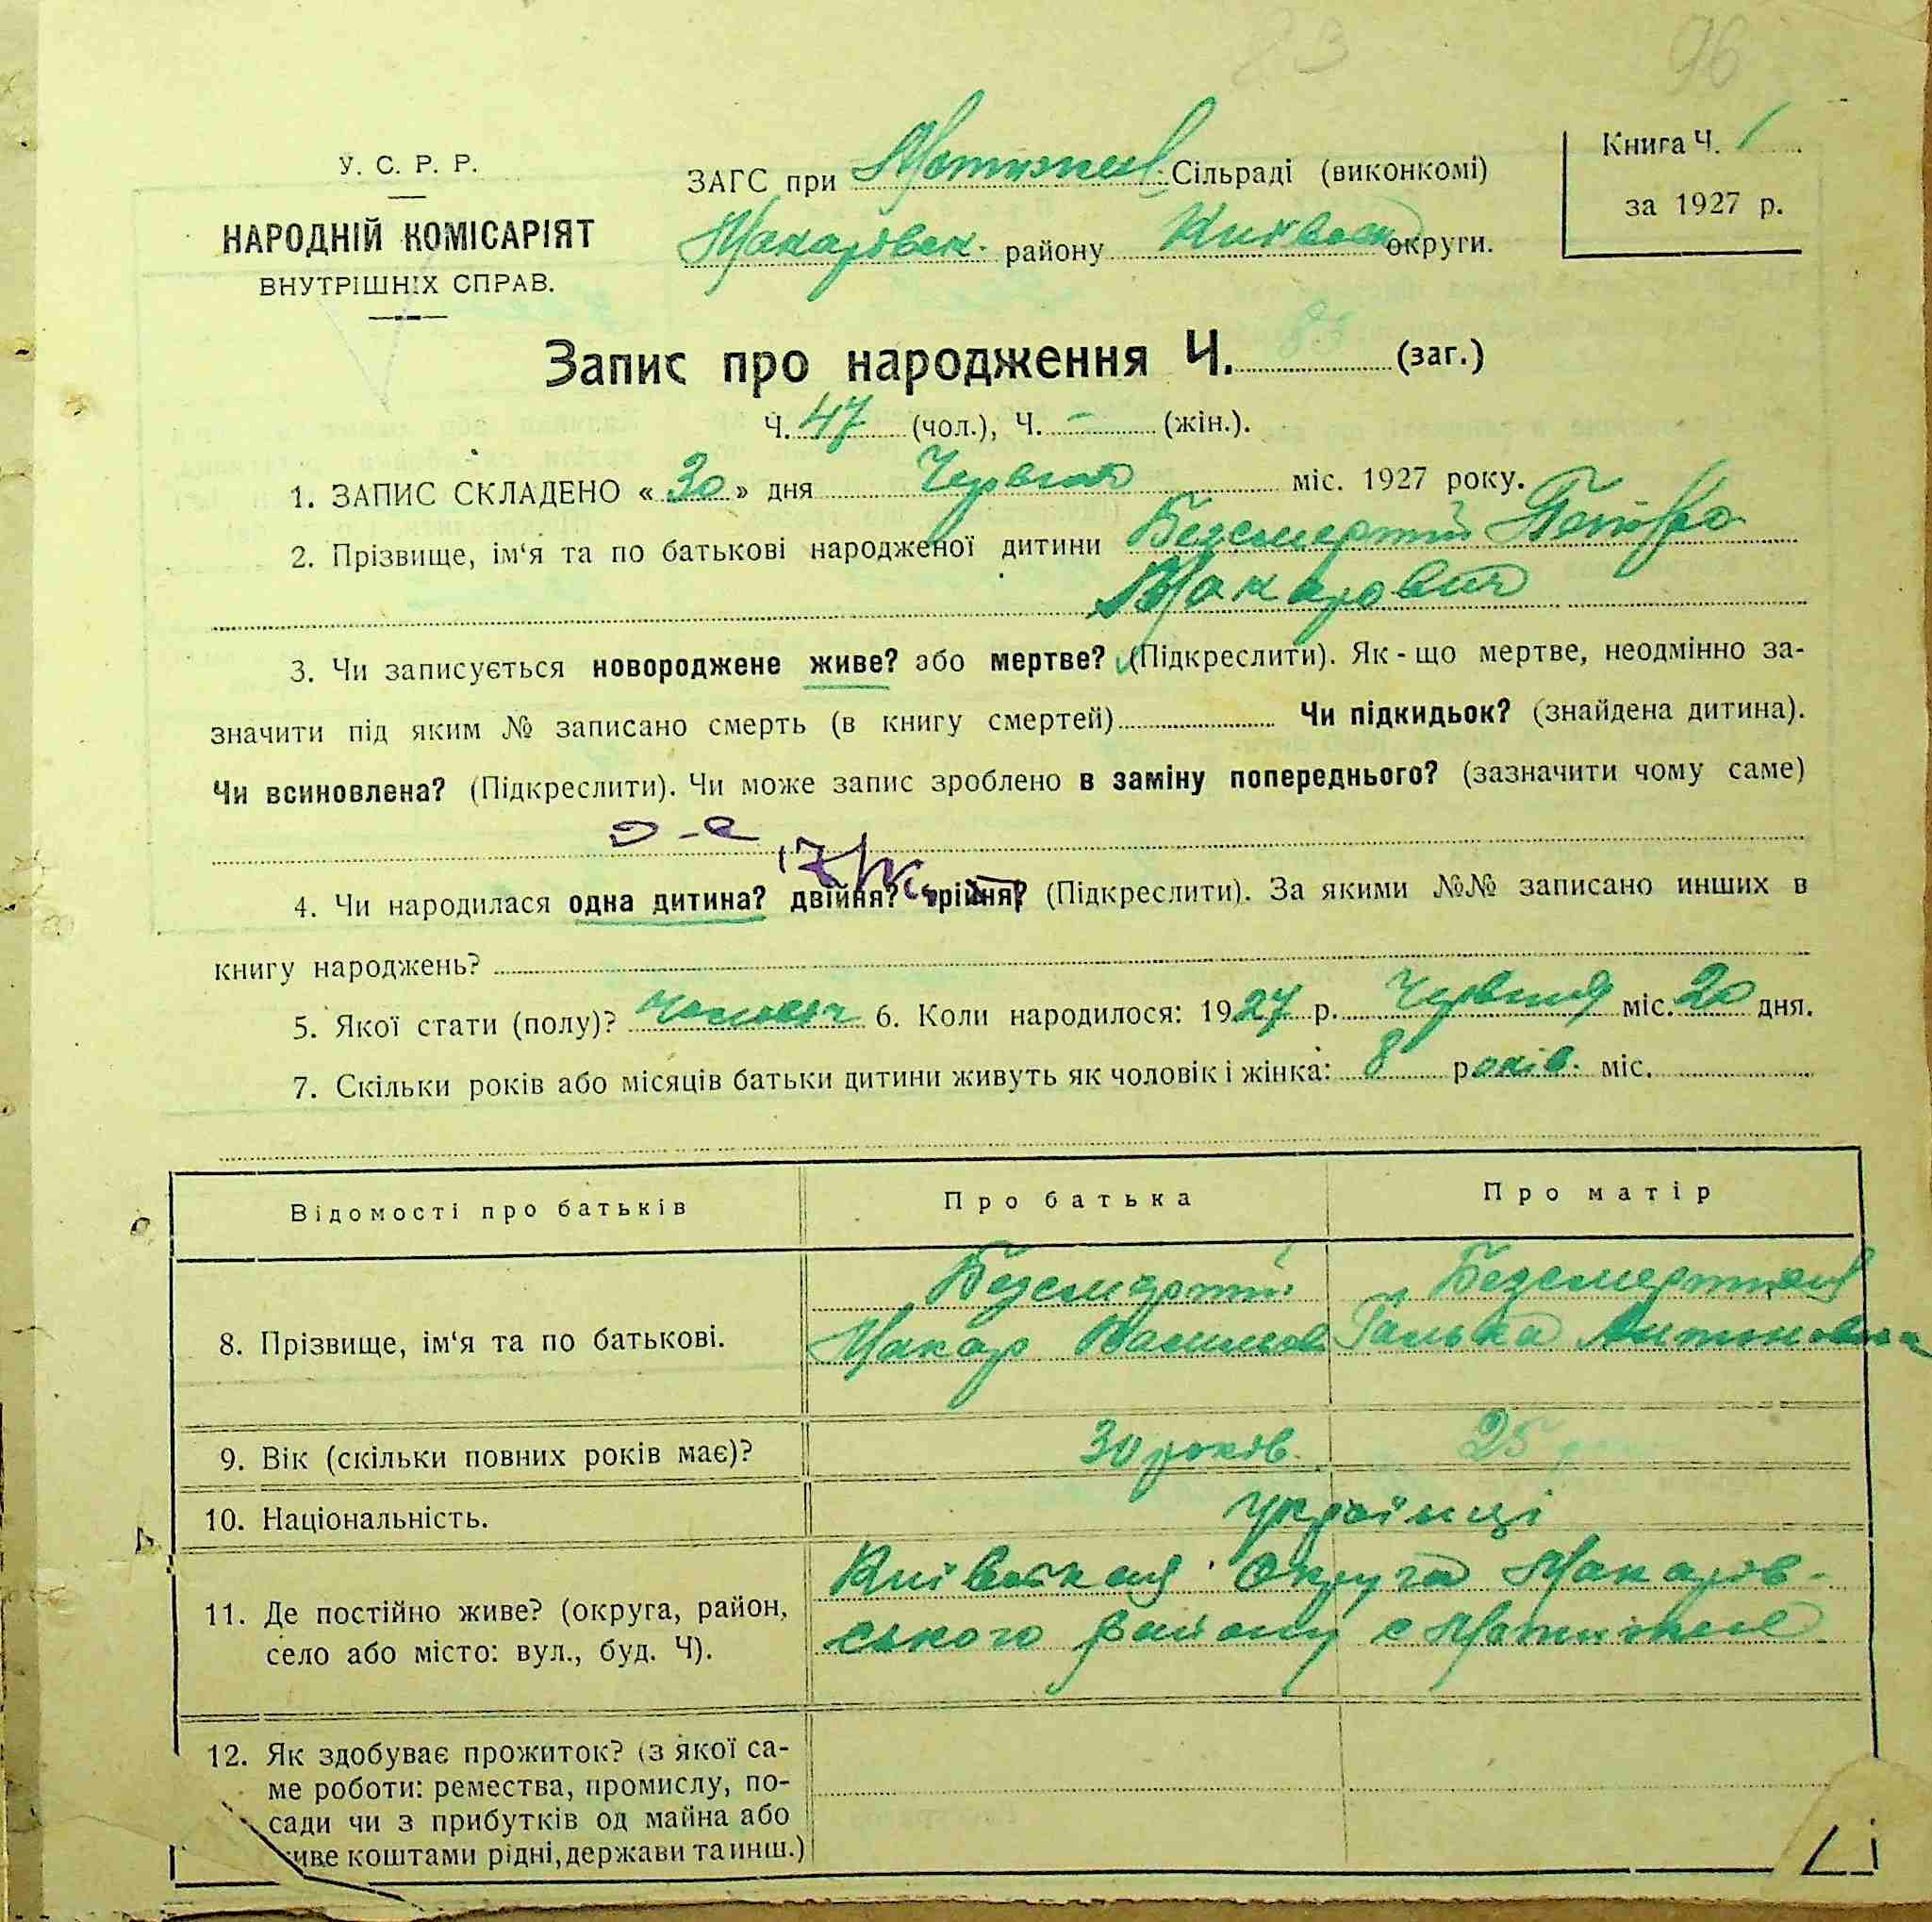 23 96
У. С. Р. Р.
НАРОДНІЙ КОМІСАРІЯТ
ВНУТРІШНІХ СПРАВ.
ЗАГС при Мотижин. Сільраді (виконкомі)
Макарівськ. району Київськ округи.
Книга Ч. 1
за 1927 р.
Запис про народження Ч. 85 (заг.)
Ч. 47 (чол.), Ч. - (жін.).
1. ЗАПИС СКЛАДЕНО « 30 » дня Червня міс. 1927 року.
2. Прізвище, ім‘я та по батькові народженої дитини Безсмертій Петро
Макарович
3. Чи записується новороджене живе? або мертве? (Підкреслити). Як-що мертве, неодмінно за-
значити під яким № записано смерть (в книгу смертей) Чи підкидьок? (знайдена дитина).
Чи всиновлена? (Підкреслити). Чи може запис зроблено в заміну попереднього? (зазначити чому саме)
4. Чи народилася одна дитина? двійня? трійня? (Підкреслити). За якими №№ записано инших в
книгу народжень?
5. Якої стати (полу)? 6. Коли народилося: 1927 р. Червня міс. 20 дня.
7. Скільки років або місяців батьки дитини живуть як чоловік і жінка: 8 років. міс.
Відомості про батьків Про батька Про матір
Безсмертій Безсмертная
8. Прізвище, ім‘я та по батькові. Макар Васильов Ганька Антоновна
9. Вік (скільки повних років має)? 30 років. 25
10. Національність. українці
11. Де постійно живе? (округа, район, Київська Округа Макарів-
село або місто: вул., буд. Ч). ського району с Мотижин
12. Як здобуває прожиток? (з якої са-
ме роботи: ремества, промислу, по-
сади чи з прибутків од майна або
живе коштами рідні, держави та инш.)